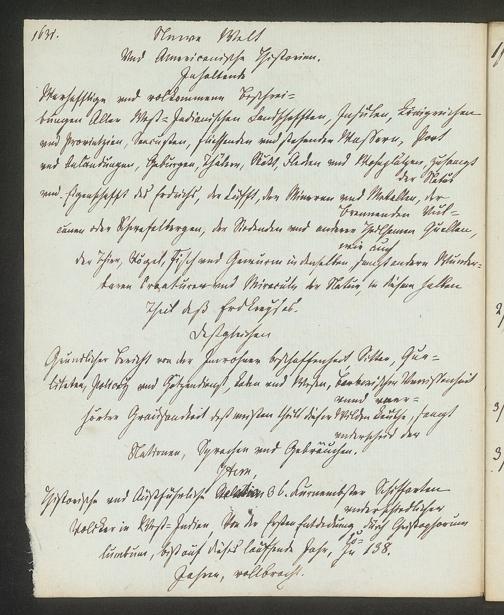 1631.
Newe Welt
Und Americanische Historien.
Inhaltende
Warhafftige und volkommene Beschrei=
bungen Aller West=Indianischen Landschafften, Insulen, Königreichen
und Provintzien, Seecusten, fliessenden und stehenden Wassern, Port
und Anländungen, Gebürgen, Thäler, Stätt, Flecken und Wohnplätzen, zusampt
der Natur
und Eygenschafft des Erdrichs, der Lüfft, der Mineren und Metallen, der
brennenden Vul=
canen oder Schwefelbergen, der Siedenden und anderer Heilsamen Quellen,
wie auch
der Thier, Vögel, Fisch und Gewürm in denselben sampt andern Wunder=
baren Creaturen und Miraculn der Natur, in diesem halben
Theil deß Erdkreyses.
Desgleichen
Gründlicher Bericht von der Inwohner Beschaffenheit Sitten, Qua=
liteten, Policey und Götzendienst, Leben und Wesen, barbarischer Unwissenheit
unnd uner=
hörter Grausamkeit dess meisten theils dieser Wilden Leuthe, sampt
underscheid der
Nationen, Sprachen und Gebräuchen.
Item,
Historische und Außführliche Relation, 36. Furnembster Schiffarten
underschiedlicher
Völcker in West=Indien Von der Ersten Entdeckung durch Christophorum
Columbum, biß auf dieses lauffende Jahr, In 138.
Jahren, vollbracht.